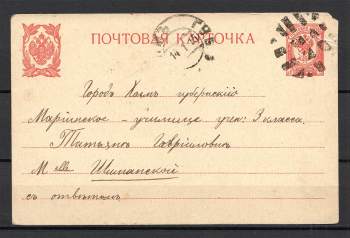 ПОЧТОВАЯ КАРТОЧКА
Городъ Холмъ губернскій
Маріинское – училище учен: 3 класса
Татьянѣ Гавріиловнѣ
M elle
съ отвѣтомъ